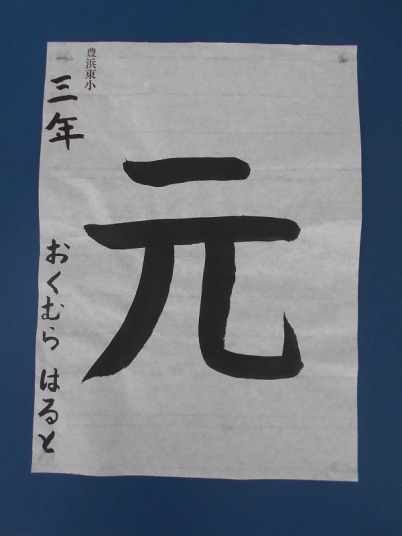 元
豊浜東小
三年 おくむら はると